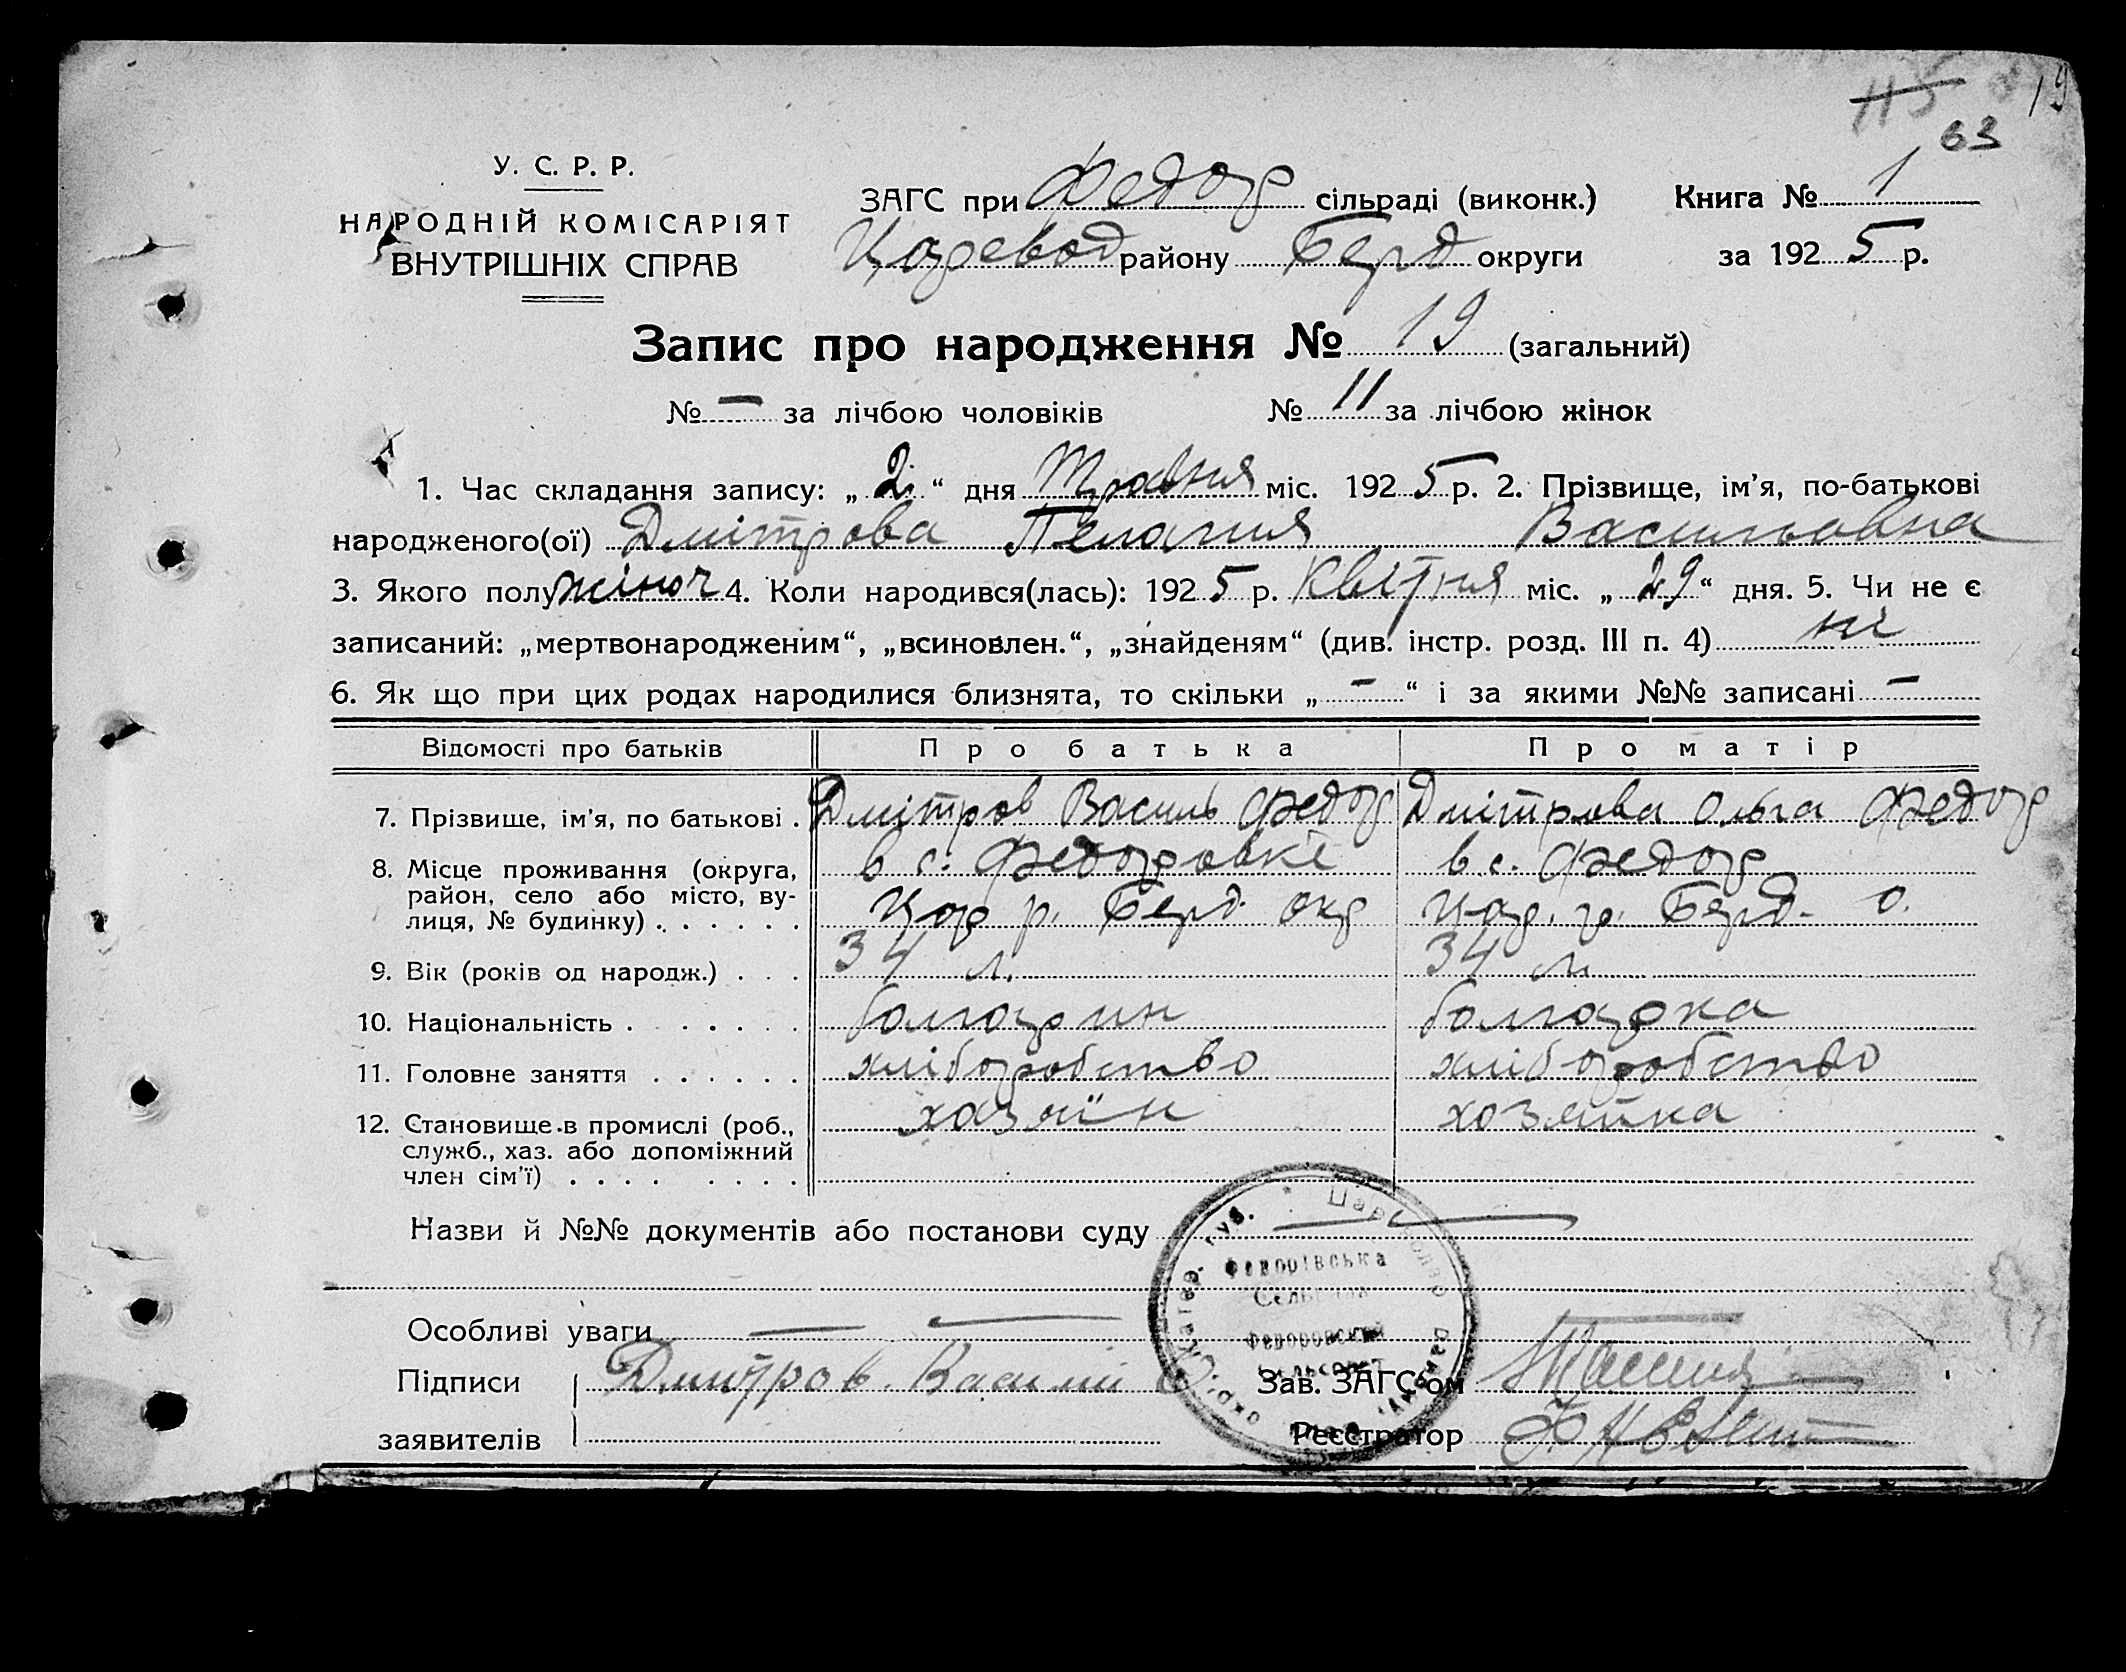 115 19
63
У. С. Р. Р.
НАРОДНІЙ КОМІСАРІЯТ
ВНУТРІШНІХ СПРАВ
ЗАГС при Федор сільраді (виконк.) Книга № 1
Царевод району Берд округи за 1925 р.
Запис про народження № 19 (загальний)
№ — за лічбою чоловіків № 11 за лічбою жінок
1. Час складання запису: „2“ дня Травня міс. 1925 р. 2. Прізвище, ім’я, по-батькові
народженого(ої) Дмітрова Пелагия Васильовна
3. Якого полу жіноч 4. Коли народився(лась): 1925 р. Квітня міс. „29“ дня. 5. Чи не є
записаний: „мертвонародженим“, „всиновлен.“, „знайденям“ (див. інстр. розд. III п. 4) ні
6. Як що при цих родах народилися близнята, то скільки „—“ і за якими №№ записані —
Відомості про батьків Про батька Про матір
7. Прізвище, ім’я, по батькові . Дмітров Василь Федор Дмітрова Ольга Федор
8. Місце проживання (округа, в с. Федоровкі в с. Федор
район, село або місто, ву-
лиця, № будинку) . . . . . . Цар р. Берд окр Цар. р. Берд. о.
9. Вік (років од народж.) . . . 34 л. 34 л.
10. Національність . . . . . . . болгарин болгарка
11. Головне заняття . . . . . . хліборобство хліборобство
12. Становище в промислі (роб., хазяїн хозяйка
служб., хаз. або допоміжний
член сім’ї) . . . . . . . .
Назви й №№ документів або постанови суду —
Федорівська
Федоровский
Особливі уваги — —
Підписи Дмитров Василий Зав. ЗАГС’ом
заявителів Реєстратор